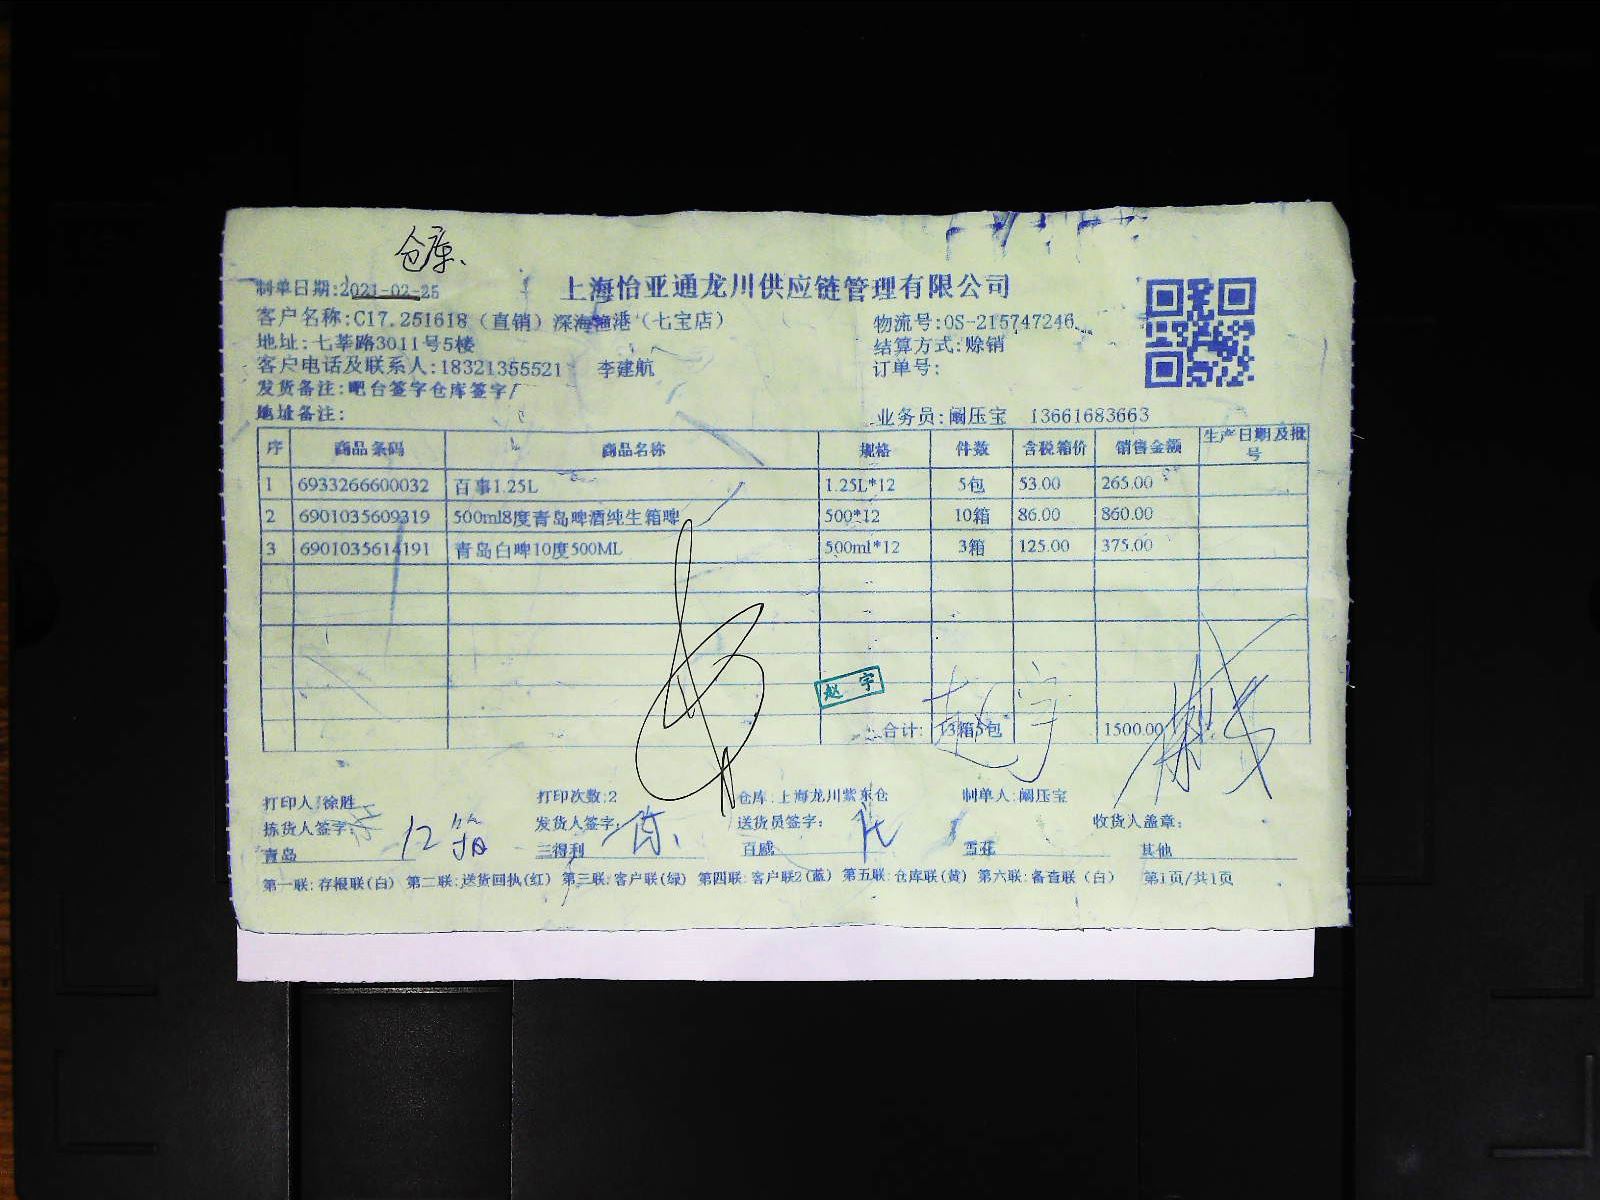 仓库.
制单日期:2021-02-25
上海怡亚通龙川供应链管理有限公司
客户名称:C17.251618（直销）深海渔港（七宝店）
物流号:OS-215747246
地址:七莘路3011号5楼
结算方式:赊销
客户电话及联系人:18321355521 李建航
订单号:
发货备注:吧台签字仓库签字/
地址备注:
业务员:阚压宝 13661683663
序 商品条码 商品名称 规格 件数 含税箱价 销售金额 生产日期及批号
1 6933266600032 百事1.25L 1.25L*12 5包 53.00 265.00
2 6901035609319 500ml8度青岛啤酒纯生箱啤 500*12 10箱 86.00 860.00
3 6901035614191 青岛白啤10度500ML 500ml*12 3箱 125.00 375.00
赵宇
赵宇
合计: 13箱5包 1500.00
打印人:徐胜 打印次数:2 仓库:上海龙川紫东仓 制单人:阚压宝
拣货人签字: 发货人签字: 送货员签字: 收货人盖章:
12箱
青岛 三得利 百威 雪花 其他
第一联:存根联(白) 第二联:送货回执(红) 第三联:客户联(绿) 第四联:客户联2(蓝) 第五联:仓库联(黄) 第六联:备查联（白） 第1页/共1页